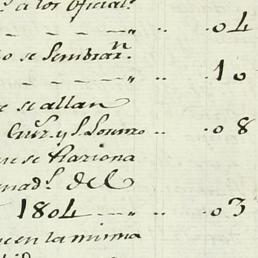 a los Oficial.s
— — — — " .. .04
se Sembrar.n
— — — — " .. 10
e se allan
Cruz. y S. Lorenzo .. .08
ue se Haziona
mad.s del
1804 — " .. .03
ue en la misma